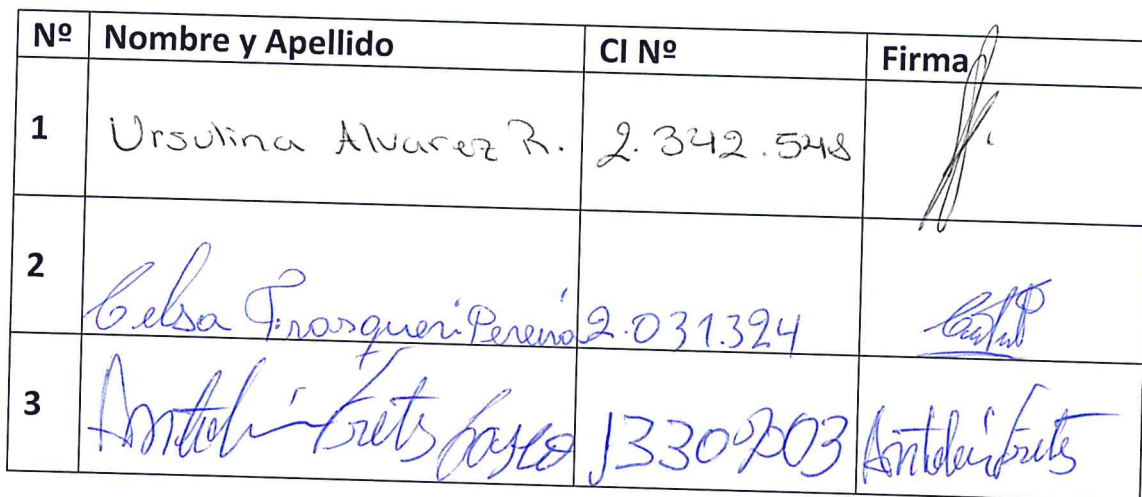 Nº Nombre y Apellido CI Nº Firma
1 Ursulina Alvarez R. 2.342.548
2 Celsa Frasqueri Pereira 2.031.324
3 Antolin Frets Antolin Frets